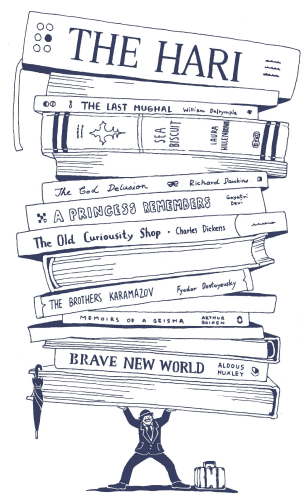 THE HARI
THE LAST MUGHAL William Dalrymple
SEA
BISCUIT
LAURA
HILLENBRAND
The God Delusion Richard Dawkins
A PRINCESS REMEMBERS Gayatri
Devi
The Old Curiosity Shop - Charles Dickens
THE BROTHERS KARAMAZOV Fyodor Dostoyevsky
MEMOIRS OF A GEISHA ARTHUR
GOLDEN
BRAVE NEW WORLD ALDOUS
HUXLEY